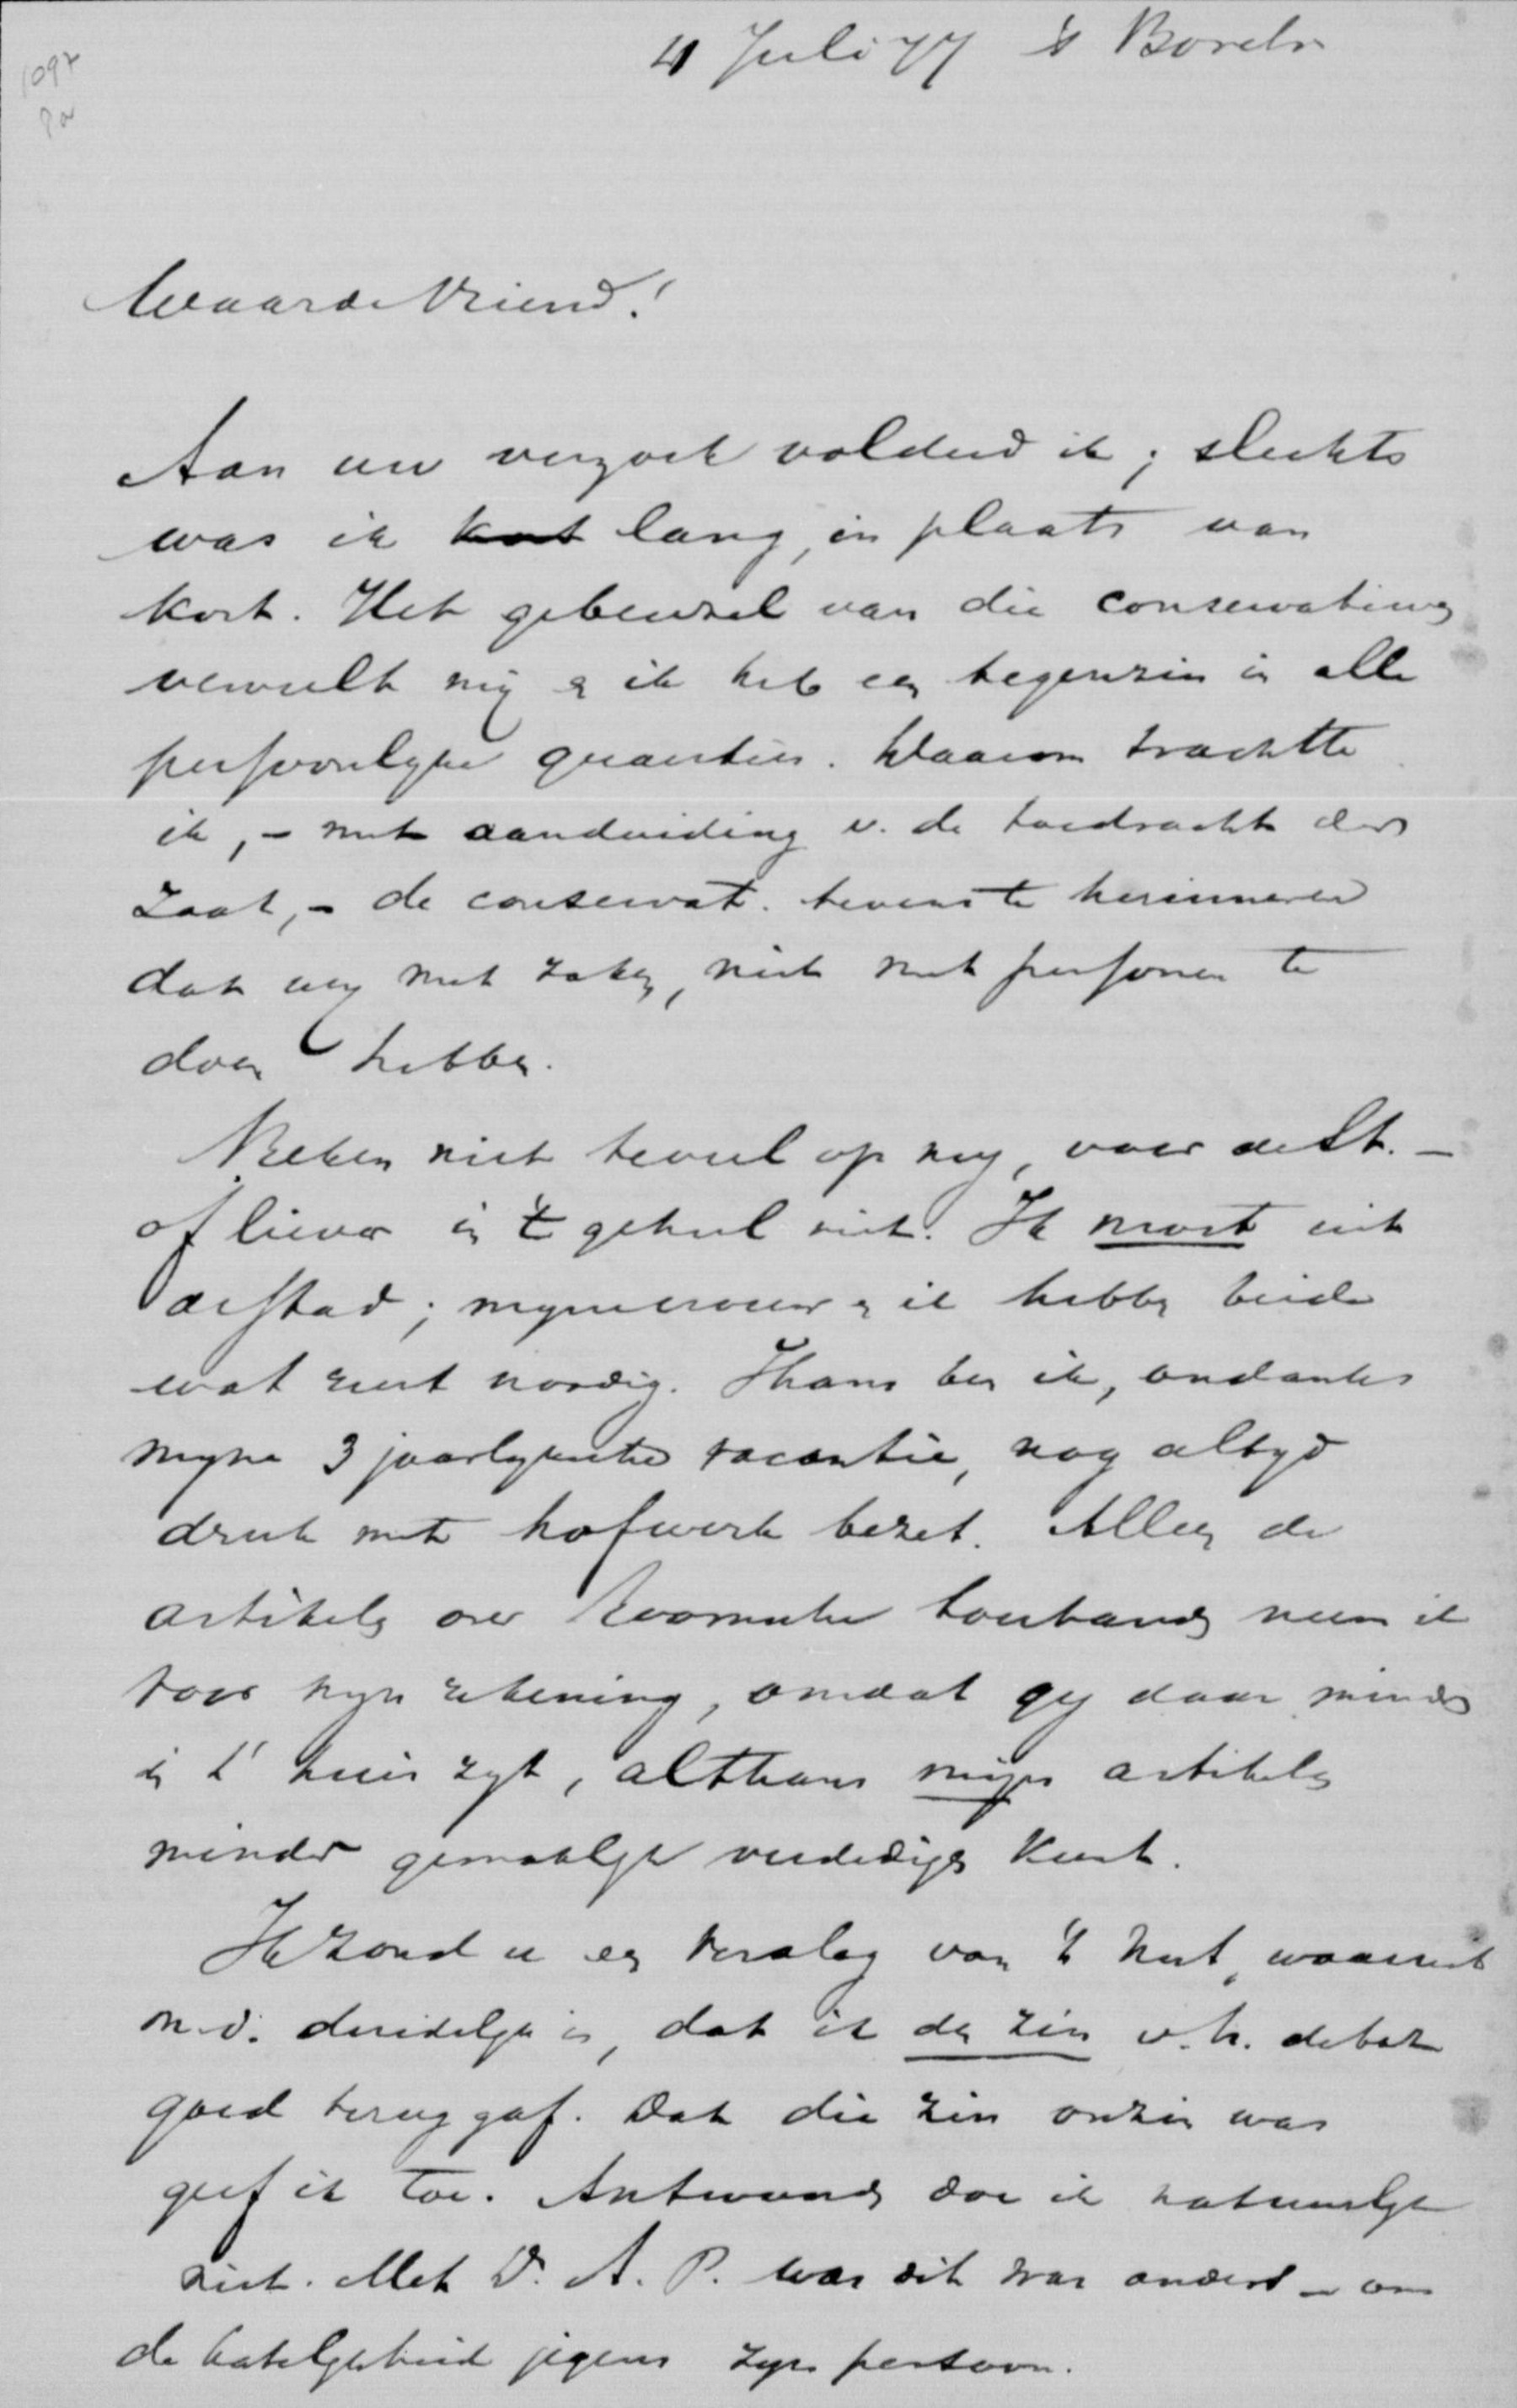 1097
4 Juli 77 's
Waarde Vriend!
Aan uw verzoek voldeed ik; slechts
was ik kort lang, in plaats van
kort. Het gebeuzel van die conservatieven
verveelt mij & ik heb een tegenzin in alle
persoonlyke quaesties. Daarom trachtte
ik, – met aanduiding v. de toedracht der
zaak, – de conservat. tevens te herinneren
dat wy met zaken, niet met personen te
doen hebben.
Reken niet teveel op my, voor de St. –
of liever in 't geheel niet. Ik moet uit
de stad; myne vrouw & ik hebben beide
wat rust noodig. Thans ben ik, ondanks
myne 3 jaarlyksche vacantie, nog altyd
druk met hofwerk bezet. Alleen de
artikelen over Roomsche toestanden neem ik
voor myn rekening, omdat gy daar minder
in t' huis zyt, althans mijn artikelen
minder gemaklyk verdedigen kunt.
Ik zond u een verslag van 't , waaruit
m.i. duidelyk is, dat ik den zin v.h. debat
goed teruggaf. Dat die zin onzin was
geef ik toe. Antwoorden doe ik natuurlyk
niet. Met D. A. P. was dit wat anders – om
de hatelykheid jegens zyn persoon.